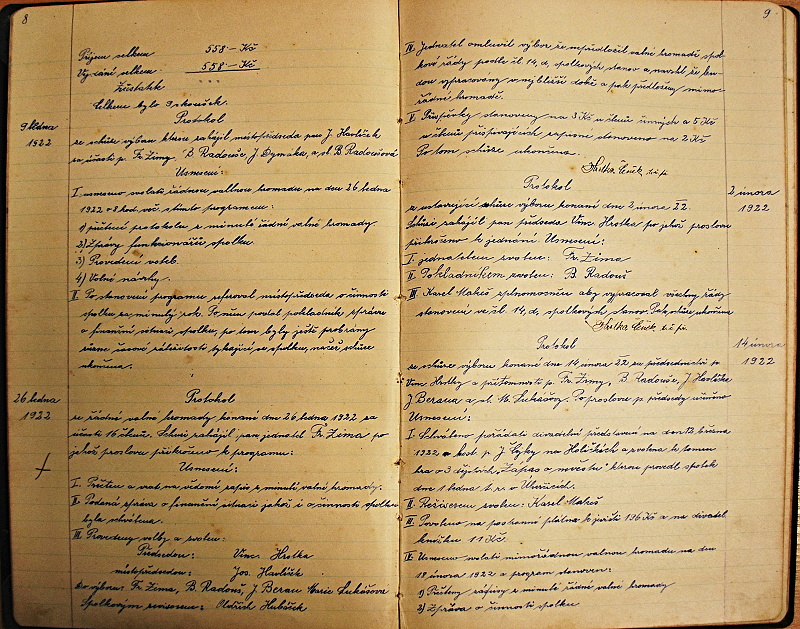 8
Příjem celkem 558·– Kč
Vydání celkem 558·– Kč
Zůstatek " " "
Celkem bylo 9 zkoušek.
Protokol
9 ledna
1922
ze schůze výboru kterou zahájil místopředseda pan J. Havlíček
za účasti p. Fr. Zimy, B. Radouše, J Dymáka, a sl. B. Radoušová
Usneseno:
I usneseno svolati řádnou valnou hromadu na den 26 ledna
1922 v 8 hod. več. s tímto programem:
1) přečtení protokolu z minulé řádné valné hromady
2) Zprávy funkcionářů spolku.
3) Provedení voleb.
4) Volné návrhy.
II. Po stanovení programu referoval místopředseda o činnosti
spolku za minulý rok. Po něm podal pokladník zprávu
o finanční situaci spolku, po tom byly ještě probrány
různé časové záležitosti týkající se spolku, načež schůze
ukončena.
26 ledna
1922
Protokol
ze řádné valné hromady konané dne 26 ledna 1922 za
účasti 16 členů. Schůzi zahájil pan jednatel Fr. Zima po
jehož proslovu přikročeno k programu:
Usneseno:
I. Přečten a vzat na vědomí zápis z minulé valné hromady.
II. Podaná zpráva o finanční situaci jakož i o činnosti spolku
byla schválena.
III Provedeny volby a zvoleni:
Předsedou: Vinc. Hrstka
místopředsedou: Jos. Havlíček
do výboru: Fr. Zima, B. Radouš, J Beran Marie Lukášová
Spolkovým revisorem: Oldřich Hubáček
9.
IV. Jednatel omluvil výbor že nepředložil valné hromadě spol-
kové řády podle čl. 14, d, spolkových stanov a navrhl že bu-
dou vypracovány v nejbližší době a pak předloženy mimo-
řádné hromadě.
V. Příspěvky stanoveny na 3 Kč u členů činných a 5 Kč
u členů přispívajících zápisné stanoveno na 2 Kč
Po tom schůze ukončena.
Hrstka Čeněk t.č. př.
Protokol
2 února
1922
z ustavující schůze výboru konané dne 2 února 22.
Schůzi zahájil pan předseda Vinc Hrstka po jehož proslovu
přikročeno k jednání. Usneseno:
I jednatelem zvolen: Fr. Zima
II. Pokladníkem zvolen: B. Radouš
III. Karel Mareš zplnomocněn aby vypracoval všechny řády
stanovené ve čl. 14, d, spolkových stanov. Pak schůze ukončena
Hrstka Čeněk t.č. př.
Protokol
14 února
1922
ze schůze výboru konané dne 14 února 22 za předsednictví p.
Vinc Hrstky a přítomnosti p. Fr. Zimy, B. Radouše, J Havlíčka
J Berana a sl. M. Lukášový. Po proslovu p. předsedy učiněno
Usnesení:
I. Schváleno pořádati divadelní představení na den 12 března
1922 v host. p. J. Cyky na Holičkách a zvolena k tomu
hra o 3 dějstvích „Zápas o nevěstu" kterou provedl spolek
dne 1 ledna t. r. v Úteřicích.
II. Režiserem zvolen: Karel Mareš
III. Povoleno na postranní plátna k jevišti 196 Kč a na divadel.
knížku 11 Kč.
IV. Usneseno svolati mimořádnou valnou hromadu na den
18 února 1922 a program stanoven:
1) Přečtení zápisu z minulé řádné valné hromady
2) Zpráva o činnosti spolku